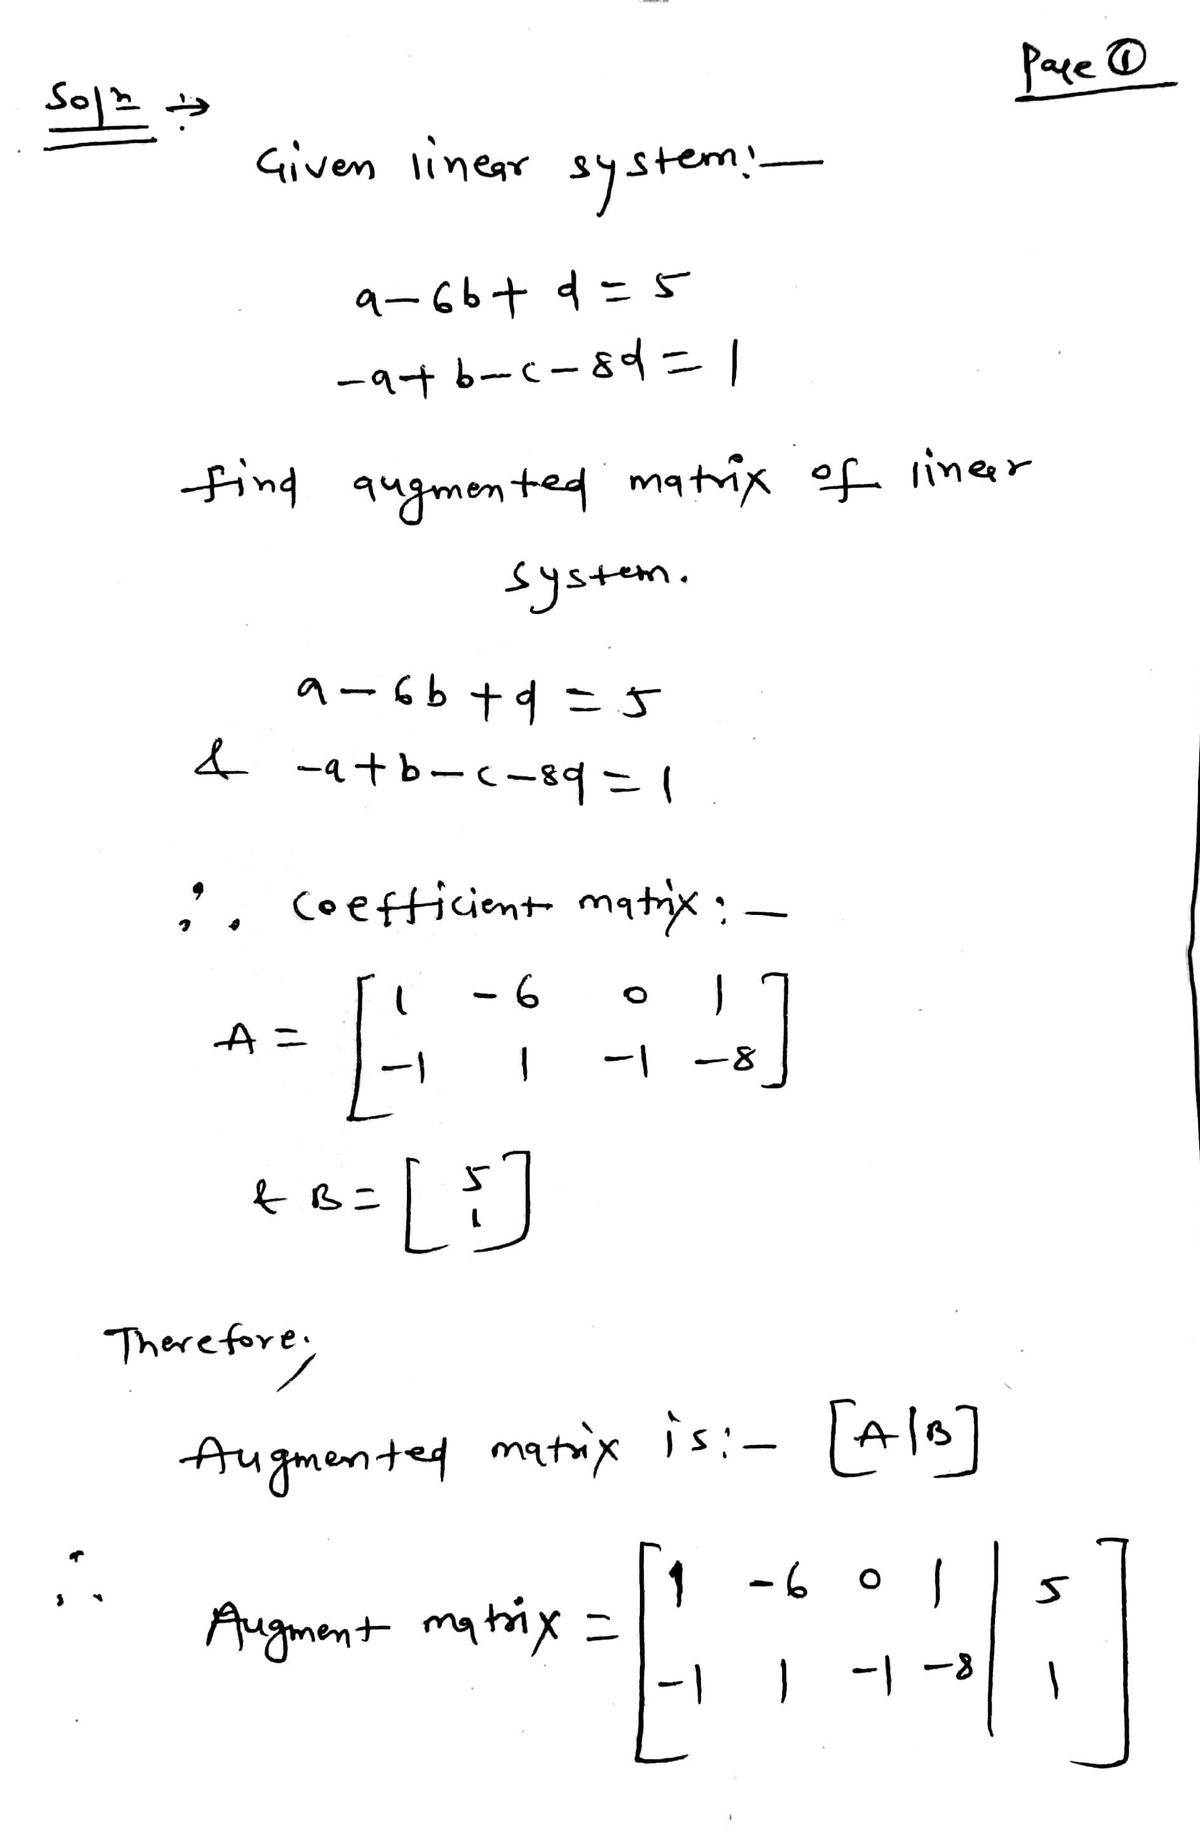 Page ①
Solⁿ ÷>
Given linear system:—
a-6b+ d = 5
-a+ b-c-8d = 1
find augmented matrix of linear
system.
a-6b+d = 5
& -a+b-c-8d = 1
∴ coefficient matrix:—
A = [ 1 -6 0 1
-1 1 -1 -8 ]
& B = [ 5
1 ]
Therefore,
Augmented matrix is:- [A|B]
∴ Augment matrix = [ 1 -6 0 1 | 5
-1 1 -1 -8 | 1 ]